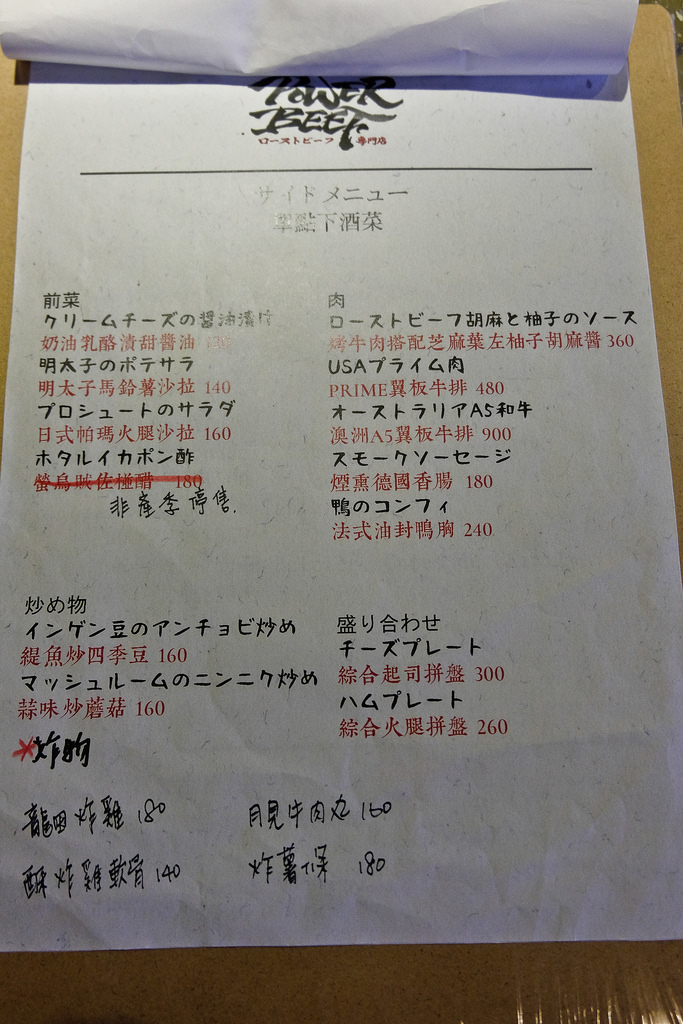 POWER
BEEF
ローストビーフ 専門店
サイドメニュー
單點下酒菜
前菜
クリームチーズの醤油漬け
奶油乳酪漬甜醬油
明太子のポテサラ
明太子馬鈴薯沙拉 140
プロシュートのサラダ
日式帕瑪火腿沙拉 160
ホタルイカポン酢
螢烏賊佐椪醋 180
非產季停售.
肉
ローストビーフ胡麻と柚子のソース
烤牛肉搭配芝麻葉左柚子胡麻醬 360
USAプライム肉
PRIME翼板牛排 480
オーストラリアA5和牛
澳洲A5翼板牛排 900
スモークソーセージ
煙熏德國香腸 180
鴨のコンフィ
法式油封鴨胸 240
炒め物
インゲン豆のアンチョビ炒め
緹魚炒四季豆 160
マッシュルームのニンニク炒め
蒜味炒蘑菇 160
盛り合わせ
チーズプレート
綜合起司拼盤 300
ハムプレート
綜合火腿拼盤 260
*炸物
龍田炸雞 180
酥炸雞軟骨 140
月見牛肉丸 160
炸薯條 180